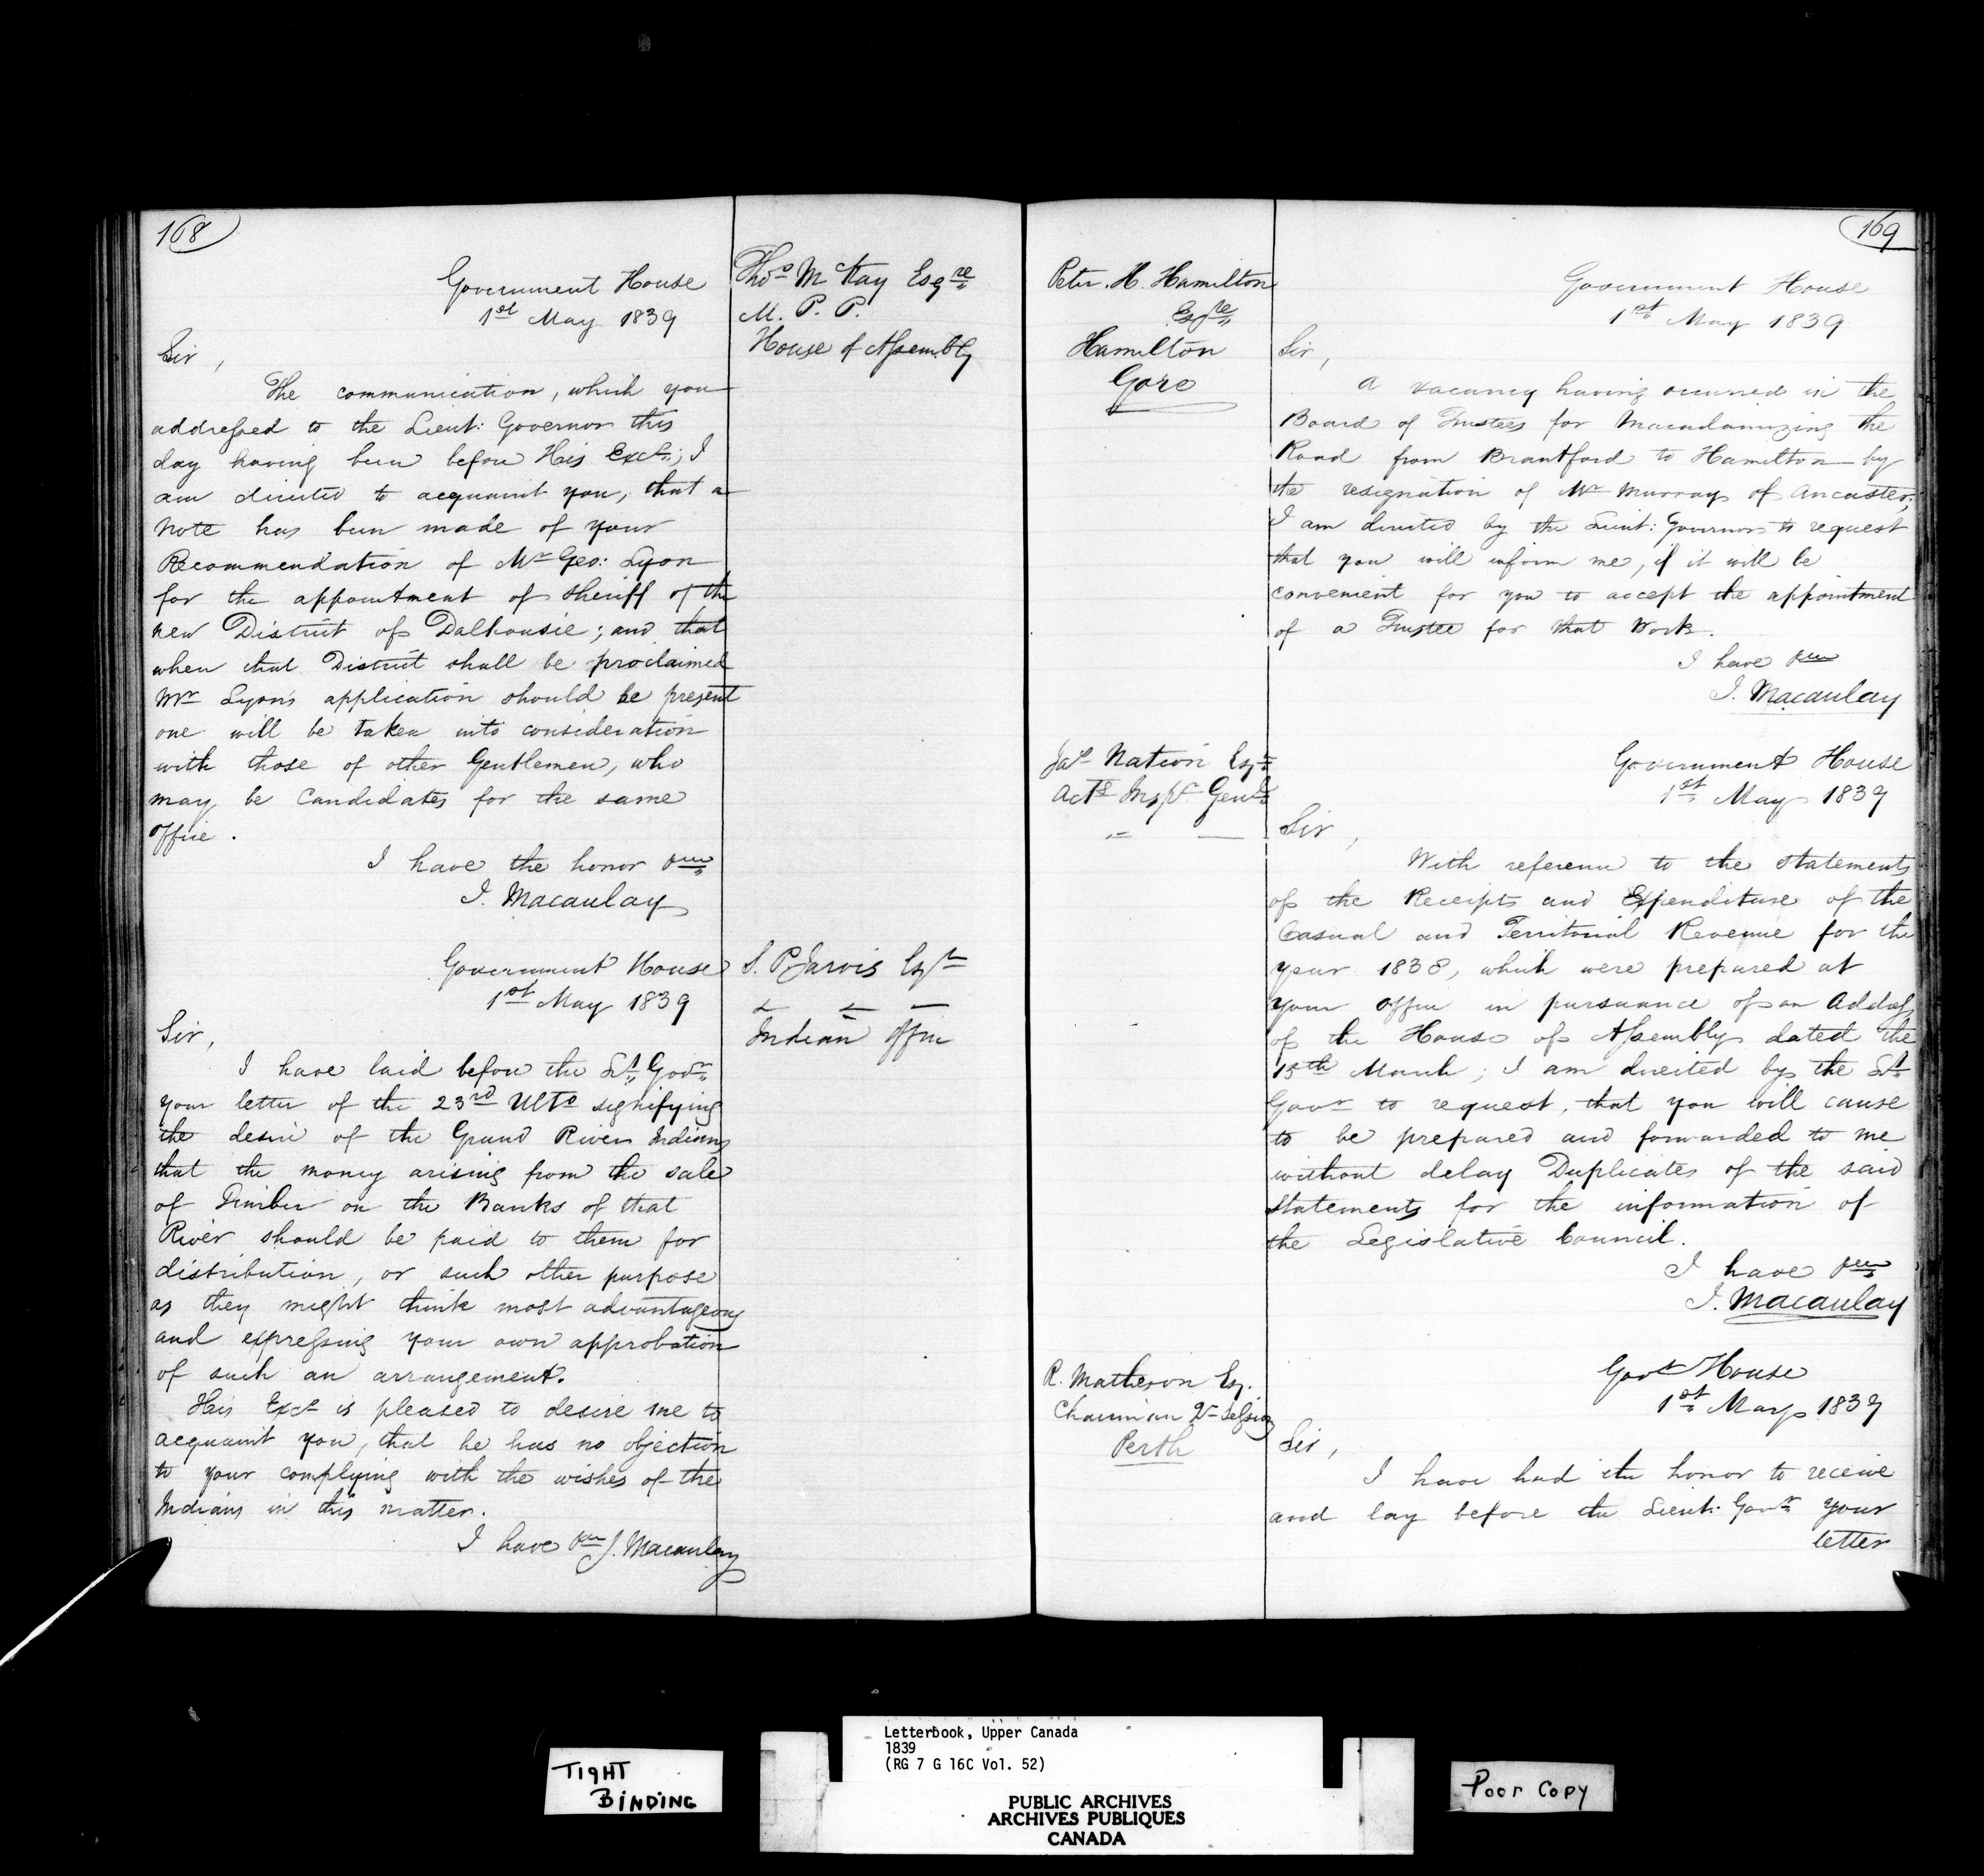 168
Government House
1st May 1839
Thos McKay Esqre
M. P. P.
House of Assembly
Sir,
The communication, which you
addressed to the Lieut: Governor this
day having been before His Excy; I
am directed to acquaint you, that a
note has been made of your
Recommendation of Mr Geo: Lyon
for the appointment of Sheriff of the
new District of Dalhousie; and that
when that District shall be proclaimed
Mr Lyons application should he present
one will be taken into consideration
with those of other Gentlemen, who
may be Candidates for the same
office.
I have the honor &c
J. Macaulay
Government House
1st May 1839
S. P. Jarvis Esqr
Indian Office
Sir,
I have laid before the Lt Govr
your letter of the 23rd Ulto signifying
the desire of the Grand River Indians
that the money arising from the sale
of Timber on the Banks of that
River should be paid to them for
distribution, or such other purpose
as they might think most advantageous
and expressing your own approbation
of such an arrangement.
His Excy is pleased to desire me to
acquaint you, that he has no objection
to your complying with the wishes of the
Indians in this matter.
I have &c J. Macaulay
169
Peter. H. Hamilton
Esqre
Hamilton
Gore
Government House
1st May 1839
Sir,
A vacancy having occurred in the
Board of Trustees for Macadamizing the
Road from Brantford to Hamilton by
the resignation of Mr Murray of Ancaster,
I am directed by the Lieut: Governor to request
that you will inform me, if it will be
convenient for you to accept the appointment
of a Trustee for that Work.
I have &c
J. Macaulay
Jas Nation Esqr
Actg Inspr Genl
Government House
1st May 1839
Sir,
With reference to the statements
of the Receipts and Expenditure of the
Casual and Territorial Revenue for the
year 1838, which were prepared at
your office in pursuance of an Address
of the House of Assembly dated the
15th March; I am directed by the Lt
Govr to request, that you will cause
to be prepared and forwarded to me
without delay Duplicates of the said
statements for the information of
the Legislative Council.
I have &c
J. Macaulay
R. Matheson Esq.
Chairman Qr Sessions
Perth
Govt House
1st May 1839
Sir,
I have had the honor to receive
and lay before the Lieut: Govr your
letter
TIGHT
BINDING
Letterbook, Upper Canada
1839
(RG 7 G 16C Vol. 52)
PUBLIC ARCHIVES
ARCHIVES PUBLIQUES
CANADA
Poor Copy